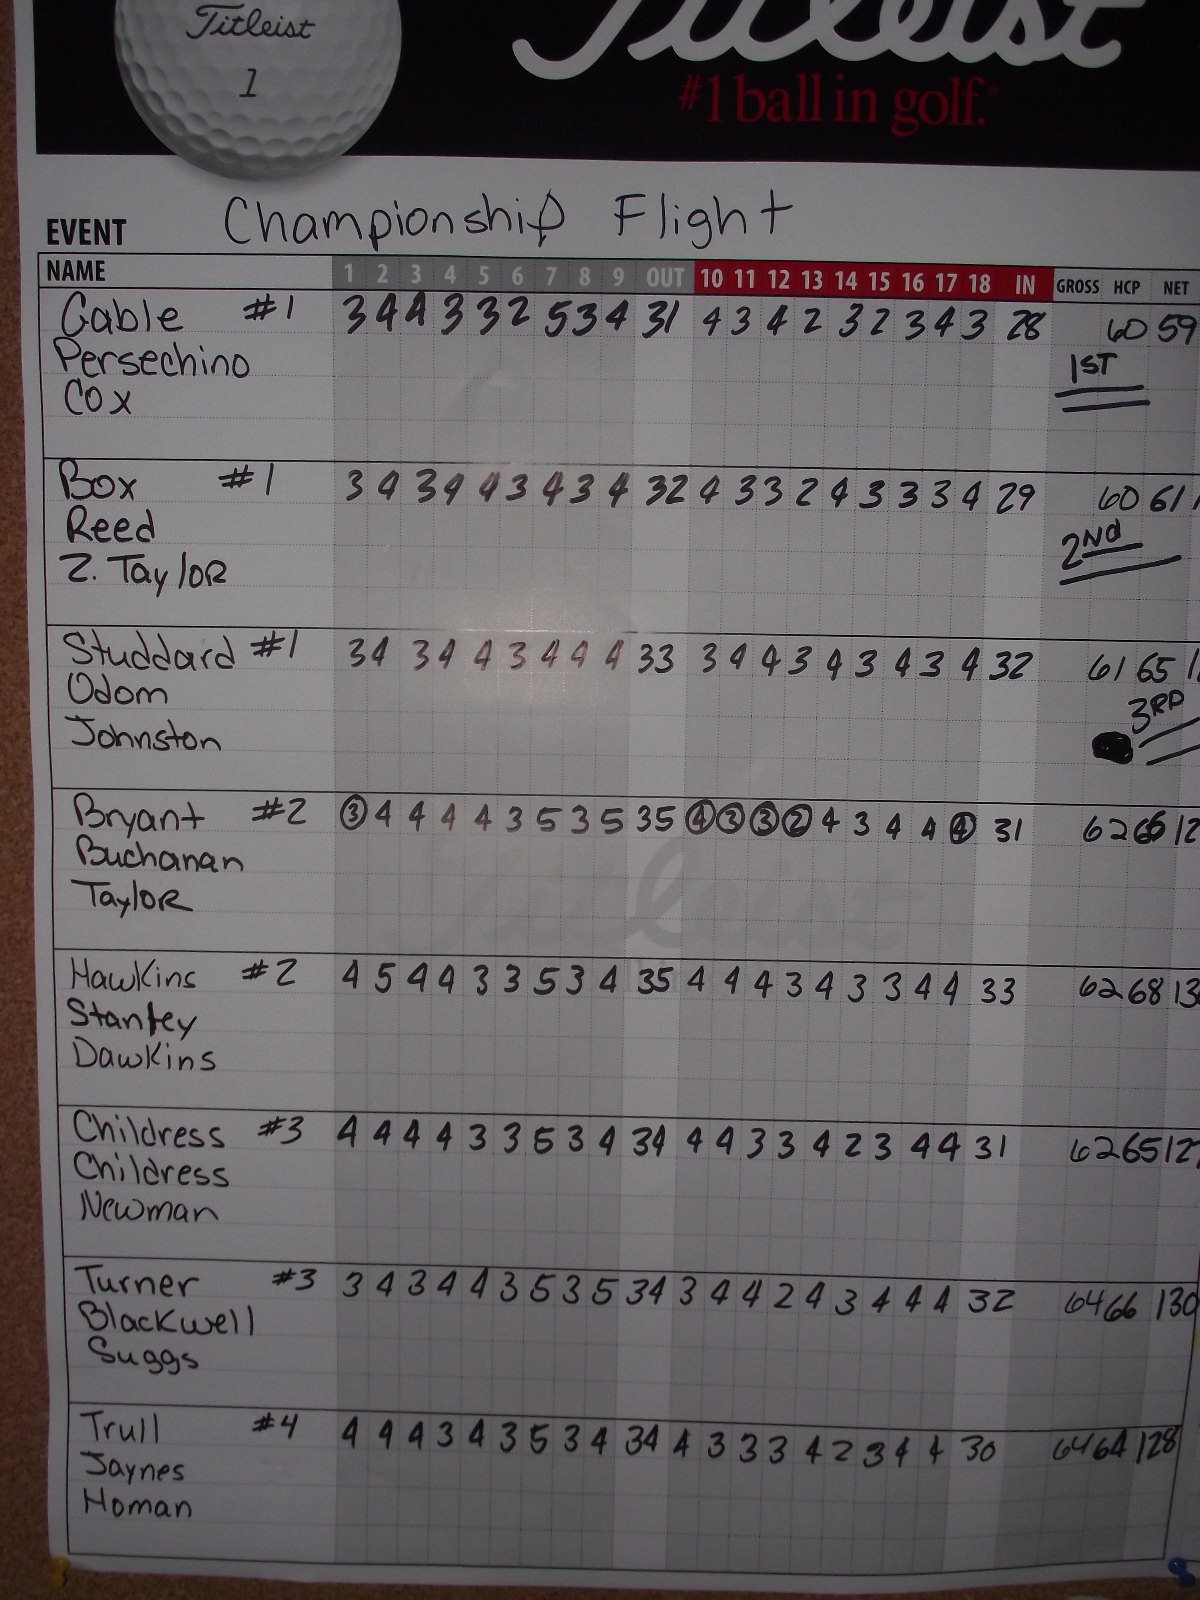 Titleist
1
Titleist
#1 ball in golf.®
EVENT Championship Flight
NAME 1 2 3 4 5 6 7 8 9 OUT 10 11 12 13 14 15 16 17 18 IN GROSS HCP NET
Cable #1 3 4 4 3 3 2 5 3 4 31 4 3 4 2 3 2 3 4 3 28 60 59
Persechino 1ST
Cox
Box #1 3 4 3 4 4 3 4 3 4 32 4 3 3 2 4 3 3 3 4 29 60 61
Reed 2Nd
Z. Taylor
Studdard #1 3 4 3 4 4 3 4 4 4 33 3 4 4 3 4 3 4 3 4 32 61 65
Odom 3RD
Johnston
Bryant #2 3 4 4 4 4 3 5 3 5 35 4 3 3 2 4 3 4 4 4 31 62 66 12
Buchanan
Taylor
Hawkins #2 4 5 4 4 3 3 5 3 4 35 4 4 4 3 4 3 3 4 4 33 62 68 13
Stanley
Dawkins
Childress #3 4 4 4 4 3 3 5 3 4 34 4 4 3 3 4 2 3 4 4 31 62 65 127
Childress
Newman
Turner #3 3 4 3 4 4 3 5 3 5 34 3 4 4 2 4 3 4 4 4 32 64 66 130
Blackwell
Suggs
Trull #4 4 4 4 3 4 3 5 3 4 34 4 3 3 3 4 2 3 4 4 30 64 64 128
Jaynes
Homan